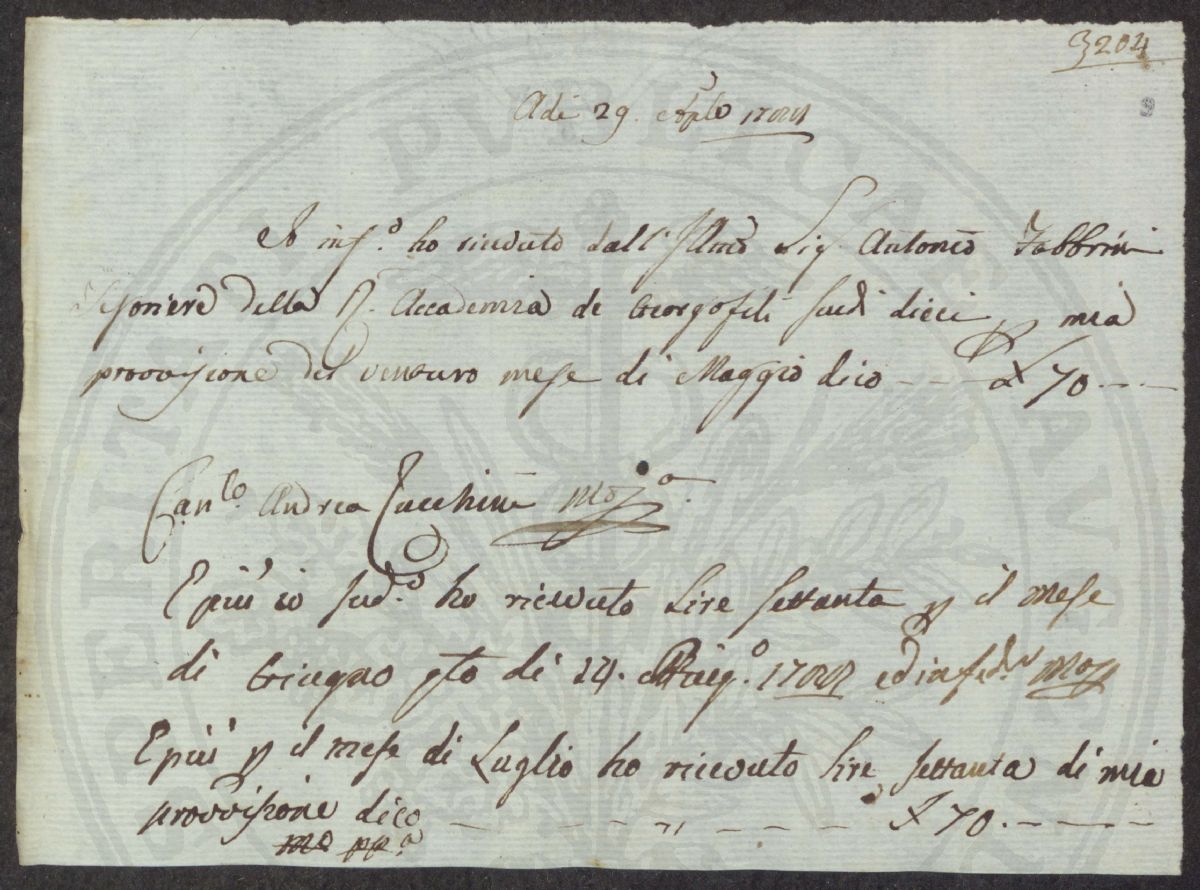 3204
9
Adì 29. Aple 1788
Io inf.o ho ricevuto dall' Illmo Sig. Antonio Fabbrini
Tesoriere della R. Accademia de Georgofili Scudi dieci p mia
provvisione del venturo mese di Maggio dico - - - £ 70 - - -
Can.co Andrea Zucchini mo p.a
E più io sud.o ho ricevuto Lire settanta p il mese
di Giugno q.to dì 24. Giug.o 1788 ed in fede mo p
E più p il mese di Luglio ho ricevuto lire settanta di mia
provvisione dico - - - - - - - £ 70. - - - -
mo pp.a
PERITATI PUBLICAE AUCTAE